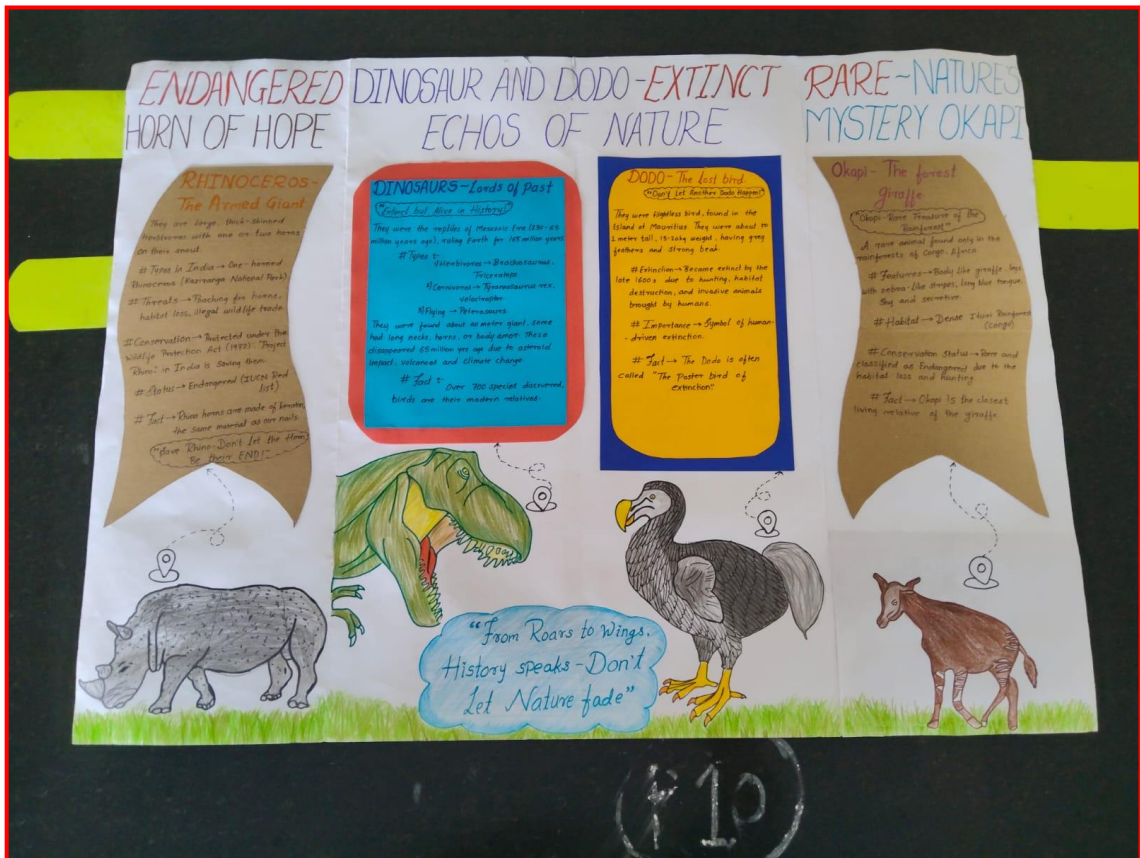 ENDANGERED
HORN OF HOPE
DINOSAUR AND DODO-EXTINCT
ECHOS OF NATURE
RARE-NATURE'S
MYSTERY OKAPI
RHINOCEROS-
The Armed Giant
They are large, thick-skinned
with one or two horns
on their snout.
# Types in India → One-horned
Rhinoceros (Kaziranga National Park)
# Threats → Poaching for horns,
habitat loss, illegal wildlife trade
# Conservation → Protected under the
Wildlife Protection Act (1972). "Project
Rhino" in India is Saving them.
# Status → Endangered (IUCN Red
list)
# Fact → Rhino horns are made of keratin,
the same material as our nails
"Save Rhino-Don't let the Horn
Be their END!"
DINOSAURS-Lords of Past
"Extinct but Alive in History!"
They were the reptiles of Mesozoic Era
million years ago), ruling Earth for 165 million years
# Types :
Herbivorous → Brachiosaurus,
Triceratops
2) Carnivorous → Tyrannosaurus rex,
velociraptor
3) Flying → Pterosaurs
They were found about meter giant, some
had long necks, horns, or body armor. These
disappeared 65 million yrs ago due to asteroid
impact, volcanoes and climate change
# Fact :
Over 700 special discovered,
birds are their modern relatives.
DODO-The lost bird
"Don't Let Another Dodo Happen"
They were flightless bird, found in the
Island of Mauritius They were about to
1 meter tall, weight, having grey
feathers and strong beak.
# Extinction → Became extinct by the
late 1600s due to hunting, habitat
destruction, and invasive animals
brought by humans.
# Importance → Symbol of human-
-driven extinction.
# Fact → The Dodo is often
called "The Poster bird of
extinction"
Okapi-The forest
giraffe
"Okapi-Rare Treasure of the
Rainforest"
A rare animal found only in the
rainforests of Congo, Africa
# Features → Body like giraffe, legs
with zebra-like stripes, long blue tongue,
Shy and secretive.
# Habitat → Dense Ituri Rainforest
(Congo)
# Conservation Status → Rare and
classified as Endangered due to the
habitat loss and hunting.
# Fact → Okapi is the closest
living relative of the giraffe.
"From Roars to Wings,
History speaks-Don't
Let Nature fade"
10